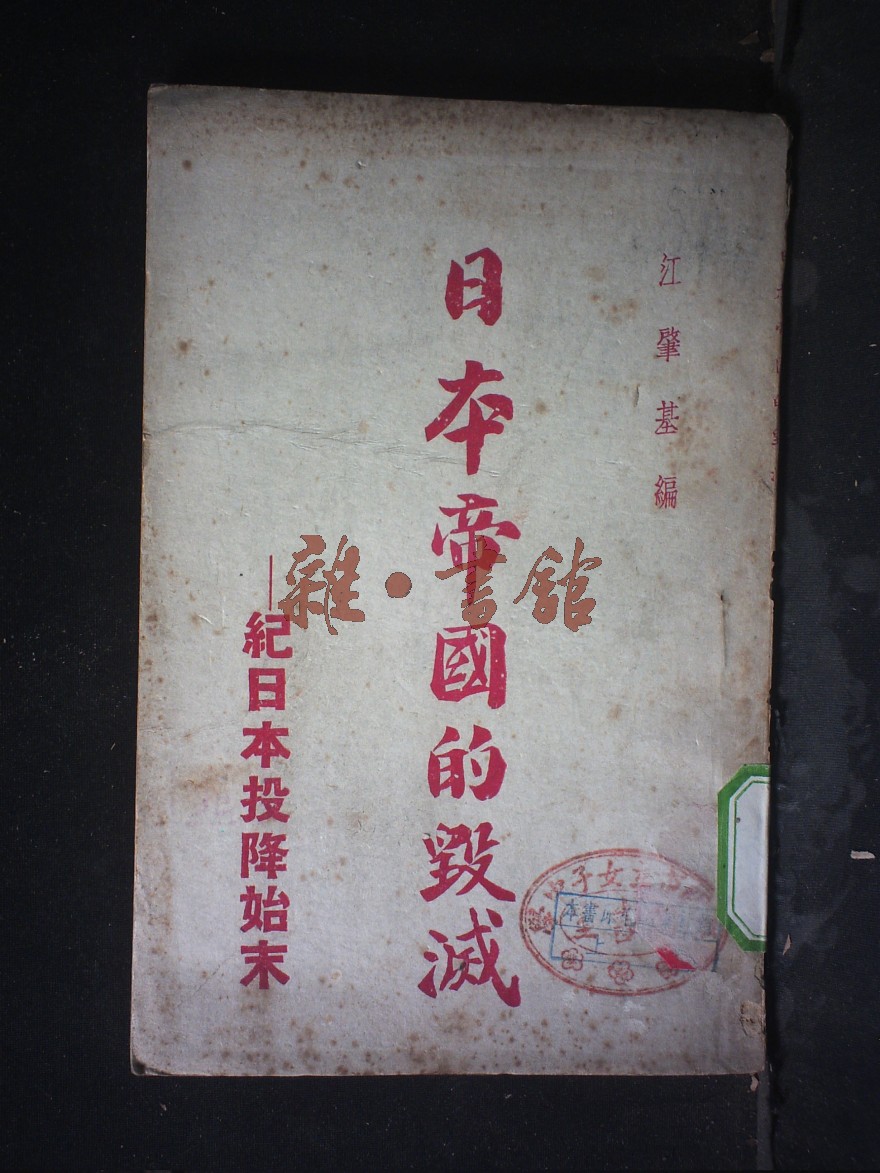 江肇基編
日本帝國的毀滅
—紀日本投降始末
雜·書館